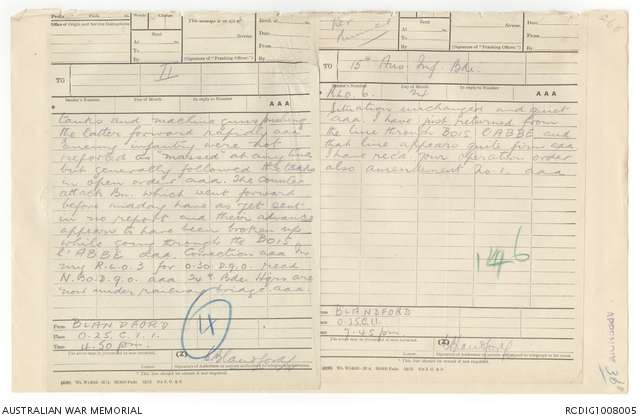 Prefix Code Words Charge
Office of Origin and Service Instructions
Sent
At m.
To
By
This message is on a/c of:
Service.
(Signature of "Franking Officer.")
Date
From
By
TO II
Sender's Number. Day of Month In reply to Number AAA
tanks and machine guns pushing
the latter forward rapidly aaa
Enemy infantry were not
reported as massed at any time
but generally followed the tanks
in open order aaa The counter
attack Bn. which went forward
before midday have as yet sent
in no report and their advance
appears to have been broken up
while going through the BOIS
L'ABBÉ aaa Correction aaa In
my R.L.O.3 for O.30.D.9.0. read
N.30.D.9.0. aaa Bde. Hqrs are
not under railway bridge aaa
4
From BLANDFORD
Place O.25.C.1.1.
Time 4.50 pm.
The above may be forwarded as now corrected. (Z)
Blandford
Sent
At m.
To
By
Service.
(Signature of "Franking Officer.")
Date
From
By
TO 15th Aus Inf. Bde.
Sender's Number. Day of Month In reply to Number AAA
RLO.6.
Situation unchanged and quiet
aaa I have just returned from
the line through BOIS L'ABBE and
that line appears quite firm aaa
I have recd. your operation order
also amendment aaa
146
From BLANDFORD
Place O.25.C.1.1.
Time 7.45 pm.
The above may be forwarded as now corrected. (Z)
Blandford
Appendix 36
AUSTRALIAN WAR MEMORIAL
RCDIG1008005